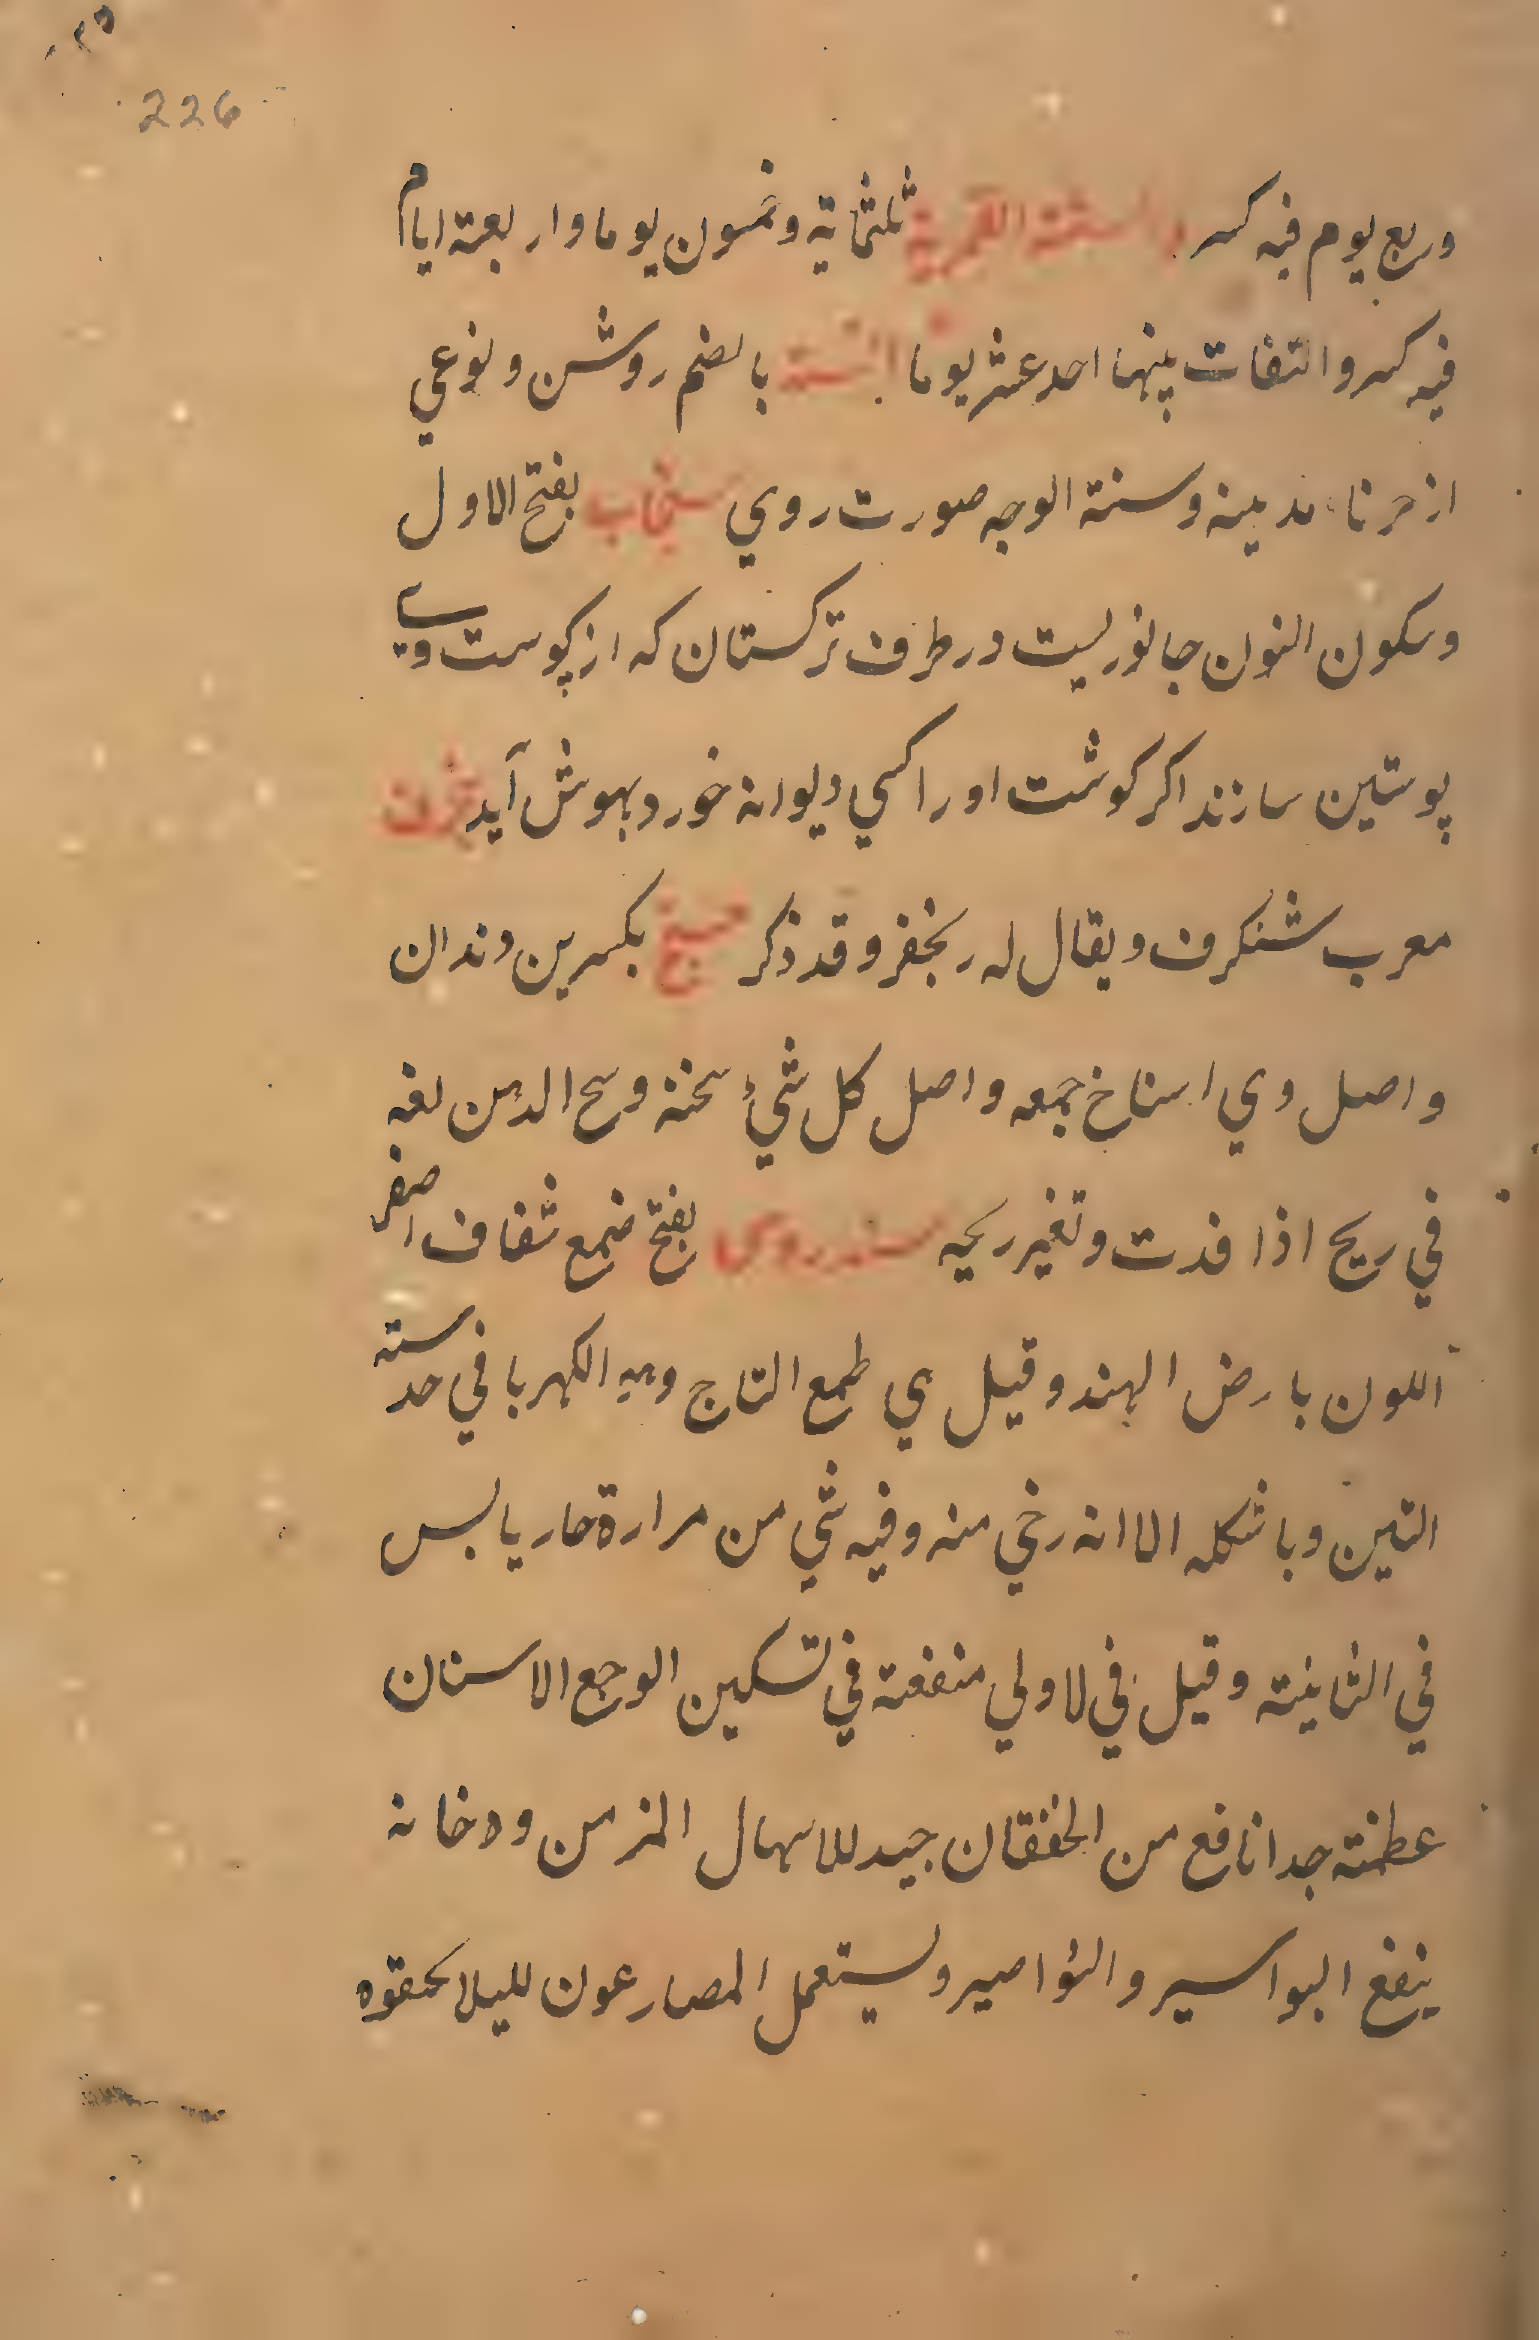 226
وربع يوم فيه كسر والسنة القمرية ثلثماية وخمسون يوما واربعة ايام
فيه كسر والتفات بينهما احد عشر يوما السنة بالضم روشن ونوعي
از خرماء مدينه وسنة الوجه صورت روي سنجاب بفتح الاول
وسكون النون جانوريست در طرف تركستان كه از پوست وي
پوستين سازند اكر كوشت اورا كسي ديوانه خورد بهوش آيد سنجرف
معرب شنكرف ويقال له زنجفر وقد ذكر سنخ بكسر بن دندان
واصل وي اسناخ جمعه واصل كل شيء سنخة وسنخ الدهن لغه
في زنخ اذا فسدت وتغير ريحه سندروس بفتح صمغ شفاف اصفر
اللون بارض الهند وقيل هي طمع التاج وهو الكهربا في حدسته
التين وباشكله الا انه رخي منه وفيه شي من مرارة حار يابس
في الثانيته وقيل في لاولي منفعته في تسكين الوجع الاسنان
عظمته جدا نافع من الخفقان جيد للاسهال المزمن ودخانه
ينفع البواسير والنواصير ويستعمل المصارعون لليلا